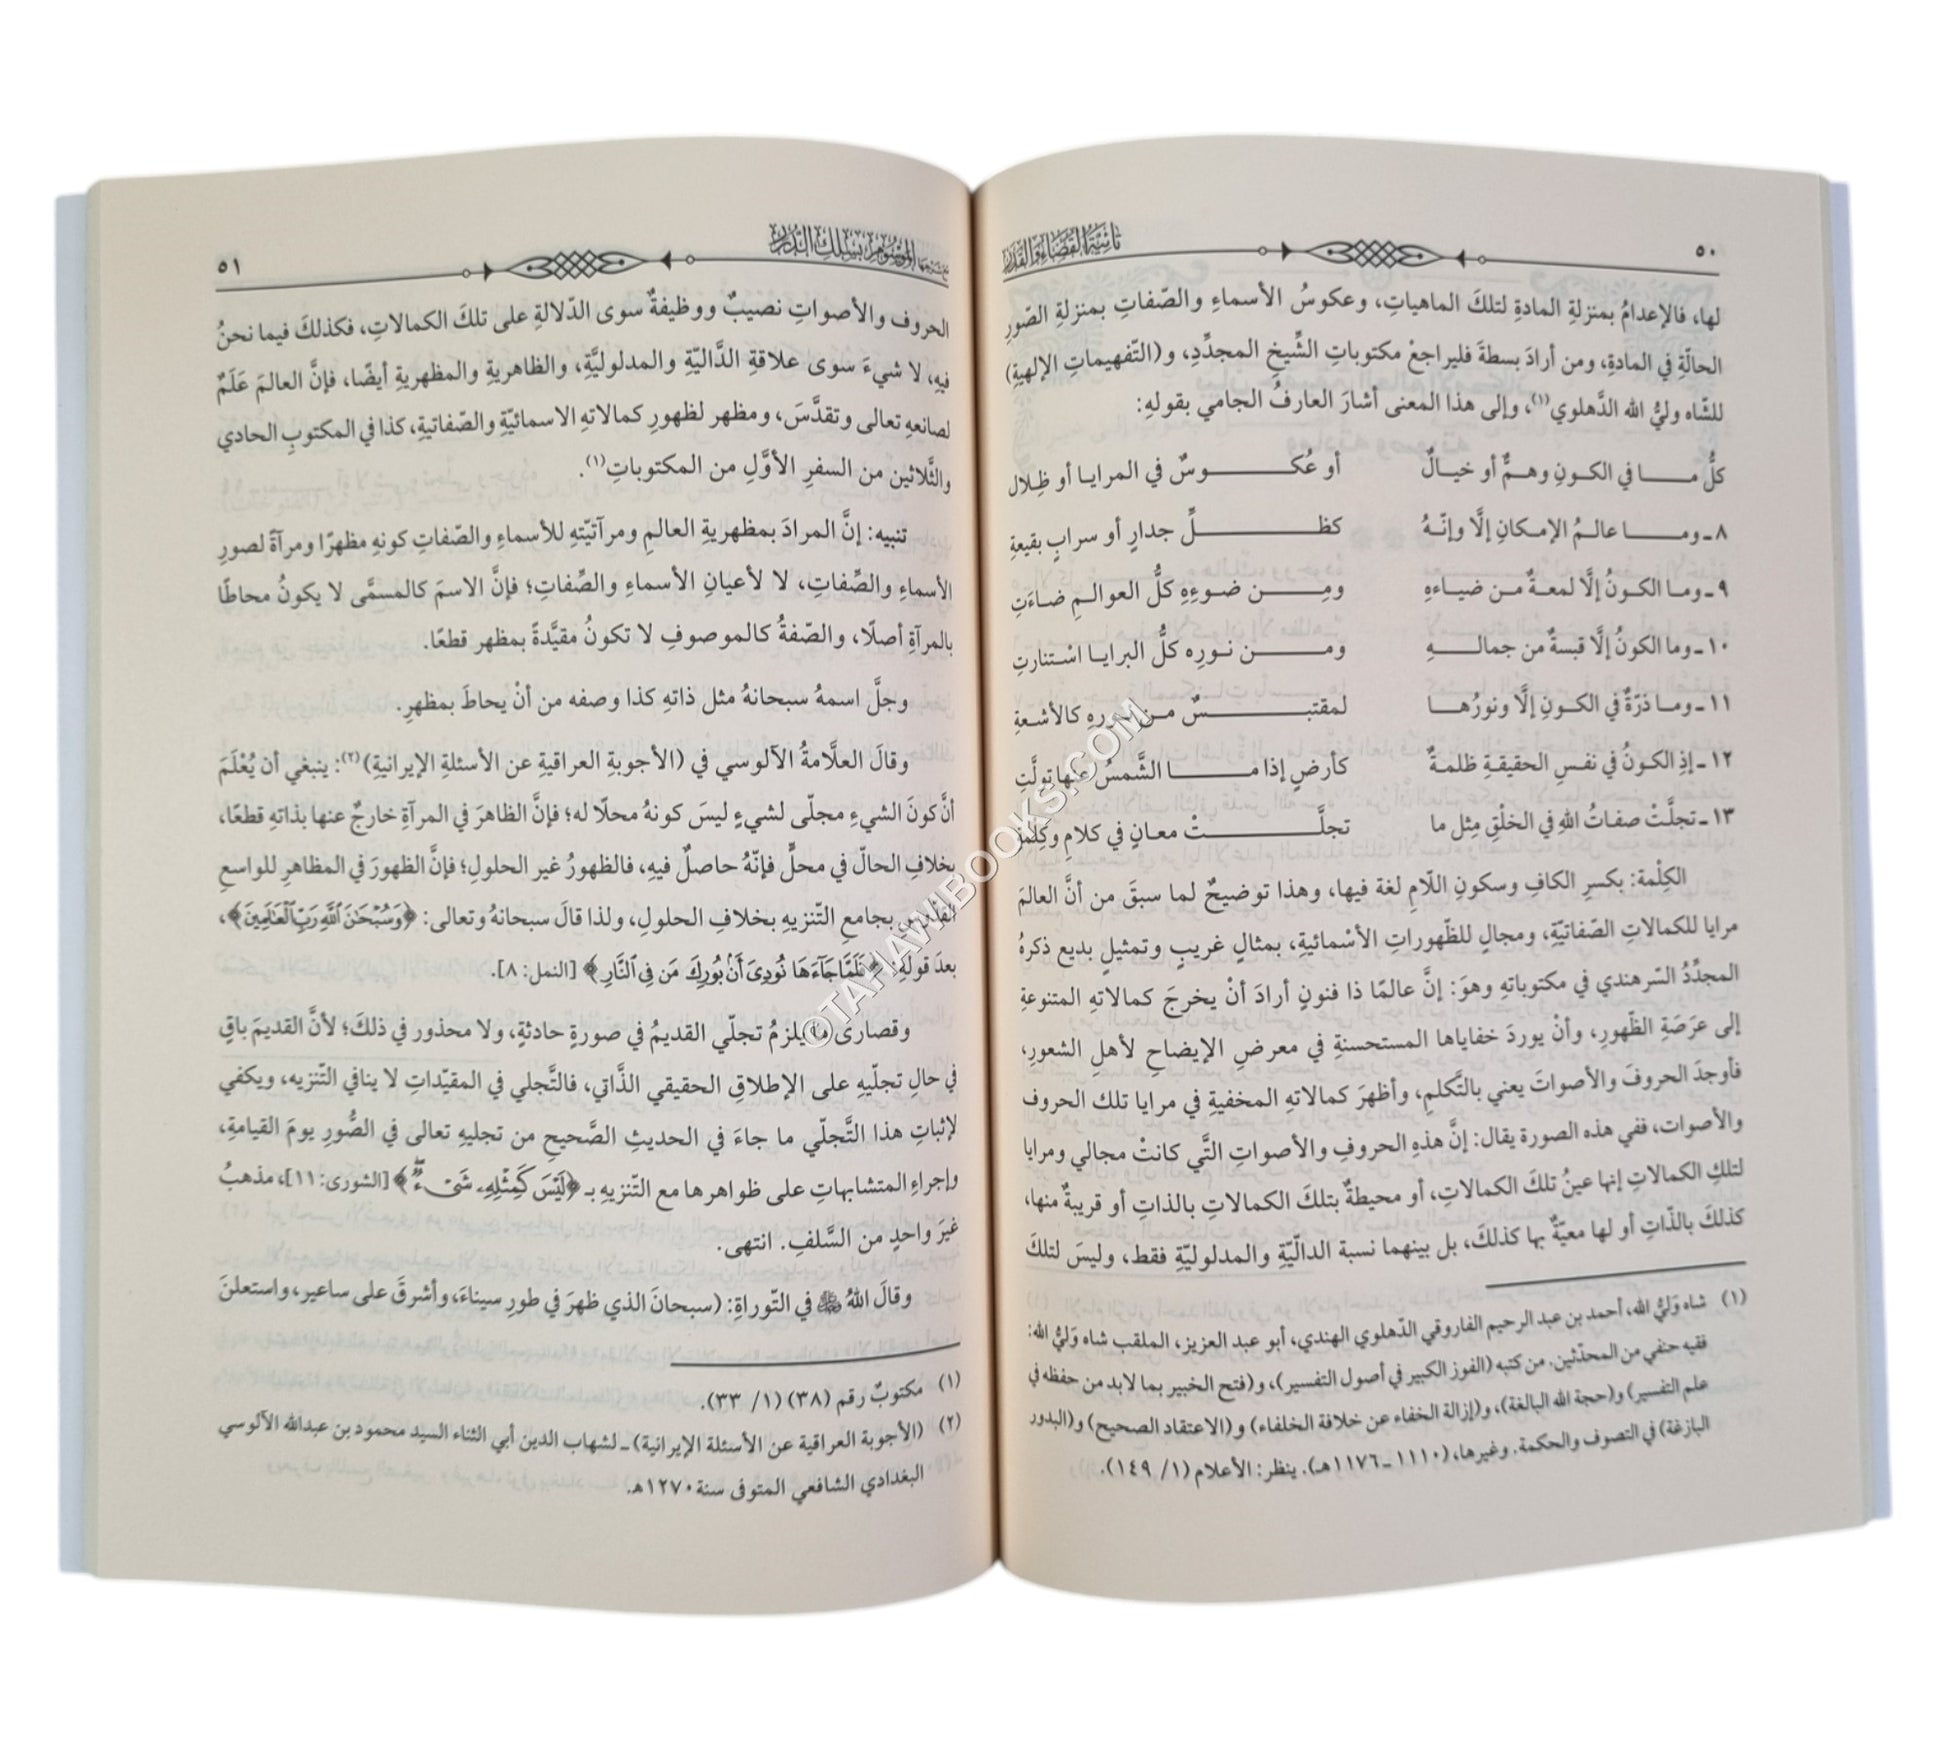 ٥٠
تائية القضاء والقدر
لها، فالإعدامُ بمنزلةِ المادةِ لتلكَ الماهياتِ، وعكوسُ الأسماءِ والصّفاتِ بمنزلةِ الصّورِ
الحالّةِ في المادةِ، ومن أرادَ بسطةً فليراجعْ مكتوباتِ الشَّيخِ المجدِّدِ، و(التّفهيماتِ الإلهيةِ)
للشّاه وليُّ الله الدَّهلوي(١)، وإلى هذا المعنى أشارَ العارفُ الجامي بقولهِ:
كلُّ مـــا في الكـونِ وهـمٌ أو خيـالٌ أو عُكـــــوسٌ في المرايـا أو ظِـلال
٨ـ ومـــا عالـمُ الإمكـانِ إلَّا وإنّـهُ كظـــــلِّ جدارٍ أو سرابٍ بقيعةِ
٩ـ ومـا الكـونُ إلَّا لمعـةٌ مـن ضيـاءهِ ومِــــن ضـوءِهِ كلُّ العوالـمِ ضـاءَتِ
١٠ـ وما الكونُ إلَّا قبسةٌ من جمالـــهِ ومــــن نـورِه كلُّ البرايـا اسْـتنارتِ
١١ـ ومـا ذرّةٌ في الكـونِ إلَّا ونورُهـا لمقتبـــــسٌ مـن نورهِ كالأشـعةِ
١٢ـ إذِ الكـونُ في نفـسِ الحقيقـةِ ظلمـةٌ كأرضٍ إذا مــــا الشَّمسُ عنها تولَّتِ
١٣ـ تجلَّتْ صفاتُ اللهِ في الخلْقِ مِثل ما تجلَّـــــتْ معـانٍ في كلامٍ وكِلْمة
الكِلْمة: بكسرِ الكافِ وسكونِ اللّامِ لغة فيها، وهذا توضيحٌ لما سبقَ من أنَّ العالمَ
مرايا للكمالاتِ الصّفاتيّةِ، ومجالٍ للظّهوراتِ الأسْمائيةِ، بمثالٍ غريبٍ وتمثيلٍ بديع ذكرهُ
المجدِّدُ السّرهندي في مكتوباتهِ وهوَ: إنَّ عالمًا ذا فنونٍ أرادَ أنْ يخرجَ كمالاتهِ المتنوعةِ
إلى عرَصَةِ الظّهورِ، وأنْ يوردَ خفاياها المستحسنةِ في معرضِ الإيضاحِ لأهلِ الشعورِ،
فأوجدَ الحروفَ والأصواتَ يعني بالتَّكلمِ، وأظهرَ كمالاتهِ المخفيةِ في مرايا تلك الحروف
والأصوات، ففي هذه الصورة يقال: إنَّ هذهِ الحروفِ والأصواتِ التَّي كانتْ مجالي ومرايا
لتلكِ الكمالاتِ إنها عينُ تلكَ الكمالاتِ، أو محيطةٌ بتلكَ الكمالاتِ بالذاتِ أو قريبةٌ منها،
كذلكَ بالذّاتِ أو لها معيّةٌ بها كذلكَ، بل بينهما نسبة الداليّةِ والمدلوليّةِ فقط، وليسَ لتلكَ
(١) شاه وَليُّ الله، أحمد بن عبد الرحيم الفاروقي الدّهلوي الهندي، أبو عبد العزيز، الملقب شاه وَليُّ الله:
فقيه حنفي من المحدّثين. من كتبه (الفوز الكبير في أصول التفسير)، و(فتح الخبير بما لابد من حفظه في
علم التفسير) و(حجة الله البالغة)، و(إزالة الخفاء عن خلافة الخلفاء) و(الاعتقاد الصحيح) و(البدور
البازغة) في التصوف والحكمة. وغيرها، (١١١٠ـ١١٧٦هـ). ينظر: الأعلام (١/ ١٤٩).
مع شرحها الموسوم بسلك الدرر
٥١
الحروف والأصواتِ نصيبٌ ووظيفةٌ سوى الدّلالةِ على تلكَ الكمالاتِ، فكذلكَ فيما نحنُ
فيهِ، لا شيءَ سوى علاقةِ الدَّاليّةِ والمدلوليَّةِ، والظاهريةِ والمظهريةِ أيضًا، فإنَّ العالمَ عَلَمٌ
لصانعهِ تعالى وتقدَّسَ، ومظهر لظهورِ كمالاتهِ الاسمائيّةِ والصّفاتيةِ، كذا في المكتوبِ الحادي
والثَّلاثين من السفرِ الأوَّلِ من المكتوباتِ(١).
تنبيه: إنَّ المرادَ بمظهريةِ العالمِ ومرآتيّتهِ للأسماءِ والصّفاتِ كونهِ مظهرًا ومرآةً لصورِ
الأسماءِ والصِّفاتِ، لا لأعيانِ الأسماءِ والصِّفاتِ؛ فإنَّ الاسمَ كالمسمَّى لا يكونُ محاطًا
بالمرآةِ أصلًا، والصّفةُ كالموصوفِ لا تكونُ مقيَّدةً بمظهر قطعًا.
وجلَّ اسمهُ سبحانهُ مثل ذاتهِ كذا وصفه من أنْ يحاطَ بمظهرِ.
وقالَ العلَّامةُ الآلوسي في (الأجوبةِ العراقيةِ عن الأسئلةِ الإيرانيةِ)(٢): ينبغي أن يُعْلَمَ
أنَّ كونَ الشيءِ مجلّى لشيءٍ ليسَ كونهُ محلًا له؛ فإنَّ الظاهرَ في المرآةِ خارجٌ عنها بذاتهِ قطعًا،
بخلافِ الحالّ في محلٍّ فإنّهُ حاصلٌ فيهِ، فالظهورُ غير الحلولِ؛ فإنَّ الظهورَ في المظاهرِ للواسعِ
القدُّوسِ بجامعِ التّنزيهِ بخلافِ الحلولِ، ولذا قالَ سبحانهُ وتعالى: ﴿وَسُبْحَانَ ٱللَّهِ رَبِّ ٱلْعَالَمِينَ﴾،
بعدَ قولهِ: ﴿فَلَمَّا جَآءَهَا نُودِىَ أَنۢ بُورِكَ مَن فِى ٱلنَّارِ﴾ [النمل: ٨].
وقصارى ما يلزمُ تجلّي القديمُ في صورةٍ حادثةٍ، ولا محذور في ذلكَ؛ لأنَّ القديمَ باقٍ
في حالِ تجلّيهِ على الإطلاقِ الحقيقي الذَّاتي، فالتَّجلي في المقيّداتِ لا ينافي التّنزيه، ويكفي
لإثباتِ هذا التَّجلّي ما جاءَ في الحديثِ الصَّحيحِ من تجليهِ تعالى في الصُّورِ يومَ القيامةِ،
وإجراءِ المتشابهاتِ على ظواهرها مع التّنزيهِ بـ ﴿لَيْسَ كَمِثْلِهِۦ شَىْءٌ﴾ [الشورى: ١١]، مذهبُ
غيرَ واحدٍ من السَّلفِ. انتهى.
وقالَ اللهُ ﷻ في التّوراةِ: (سبحانَ الذي ظهرَ في طورِ سيناءَ، وأشرقَ على ساعير، واستعلنَ
(١) مكتوبٌ رقم (٣٨) (١/ ٣٣).
(٢) (الأجوبة العراقية عن الأسئلة الإيرانية) ـ لشهاب الدين أبي الثناء السيد محمود بن عبدالله الآلوسي
البغدادي الشافعي المتوفى سنة ١٢٧٠هـ.
©TAHAWIBOOKS.COM